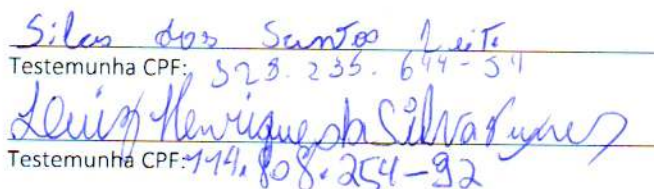 Silas dos Santos Leite
Testemunha CPF: 323.235.644-54
Luiz Henrique da Silva
Testemunha CPF: 114.808.254-92